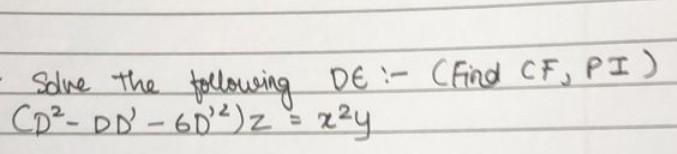 Solve the following DE :- (Find CF, PI)
(D² - DD' - 6D'²)z = x²y